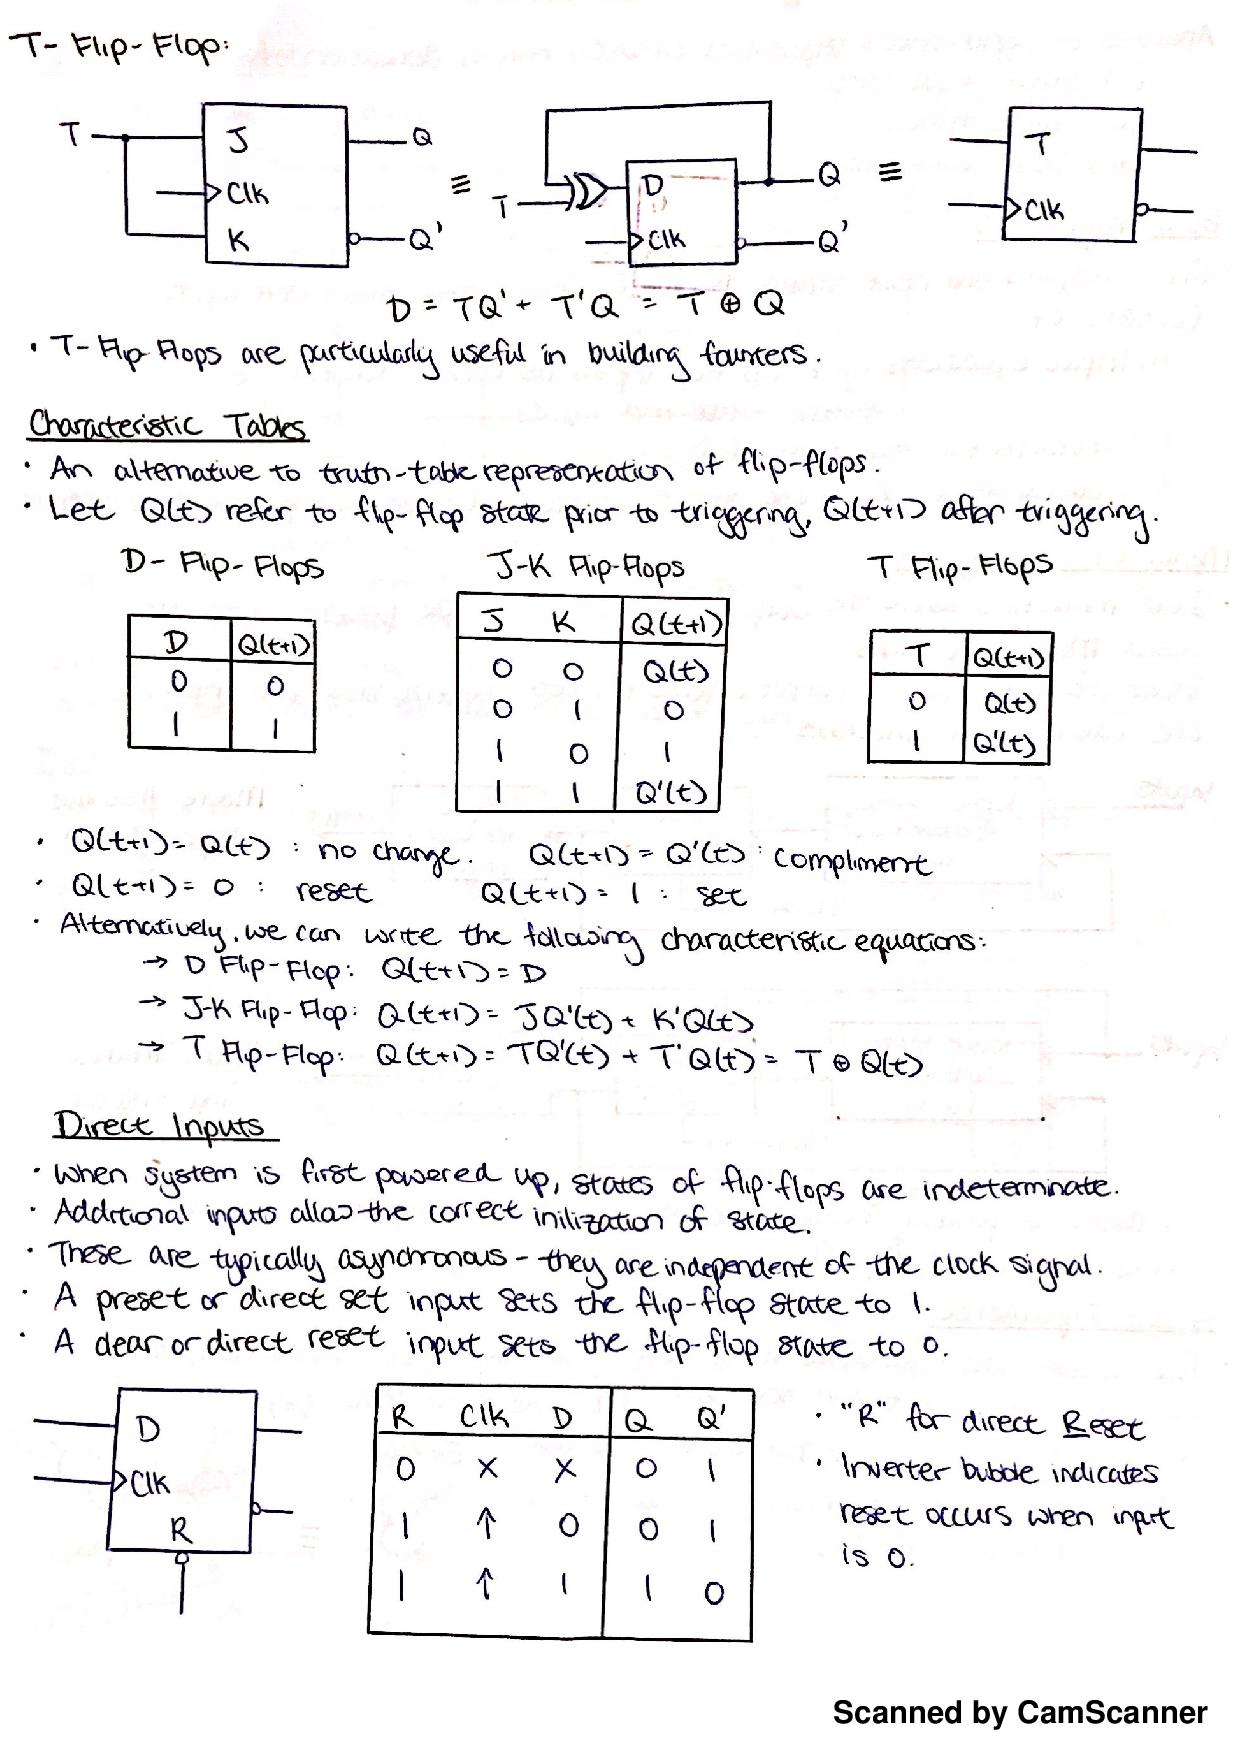 T- Flip-Flop:
T J Clk K Q Q' ≡ T D Clk Q Q' ≡ T Clk
D = TQ' + T'Q = T ⊕ Q
· T-Flip Flops are particularly useful in building counters.
Characteristic Tables
· An alternative to truth-table representation of flip-flops.
· Let Q(t) refer to flip-flop state prior to triggering, Q(t+1) after triggering.
D- Flip-Flops J-K Flip-Flops T Flip-Flops
D Q(t+1)
0 0
1 1
J K Q(t+1)
0 0 Q(t)
0 1 0
1 0 1
1 1 Q'(t)
T Q(t+1)
0 Q(t)
1 Q'(t)
· Q(t+1)= Q(t) : no change. Q(t+1) = Q'(t) : compliment
· Q(t+1)= 0 : reset Q(t+1) = 1 : set
· Alternatively, we can write the following characteristic equations:
→ D Flip-Flop: Q(t+1) = D
→ J-K Flip-Flop: Q(t+1) = JQ'(t) + K'Q(t)
→ T Flip-Flop: Q(t+1) = TQ'(t) + T'Q(t) = T ⊕ Q(t)
Direct Inputs
· When system is first powered up, states of flip-flops are indeterminate.
· Additional inputs allow the correct inilization of state.
· These are typically asynchronous - they are independent of the clock signal.
· A preset or direct set input sets the flip-flop state to 1.
· A clear or direct reset input sets the flip-flop state to 0.
D
Clk
R
R Clk D Q Q'
0 X X 0 1
1 ↑ 0 0 1
1 ↑ 1 1 0
· "R" for direct Reset
· Inverter bubble indicates
reset occurs when input
is 0.
Scanned by CamScanner